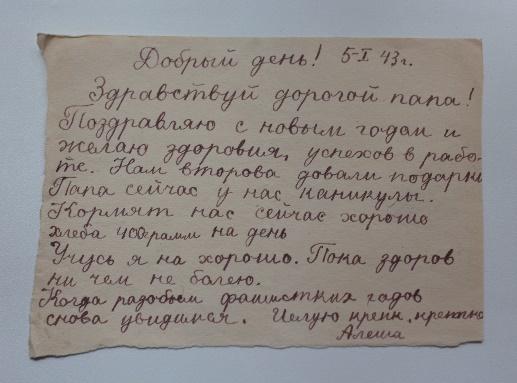 Добрый день! 5-I 43г.
Здравствуй дорогой папа!
Поздравляю с новым годом и
желаю здоровия, успехов в рабо-
те. Нам второва довали подарки
Папа сейчас у нас каникулы.
Кормят нас сейчас хорошо
хлеба 400грамм на день
Учусь я на хорошо. Пока здоров
ни чем не болею.
Когда разобьем фашистких гадов
снова увидимся. Целую крепк. крепко
Алеша